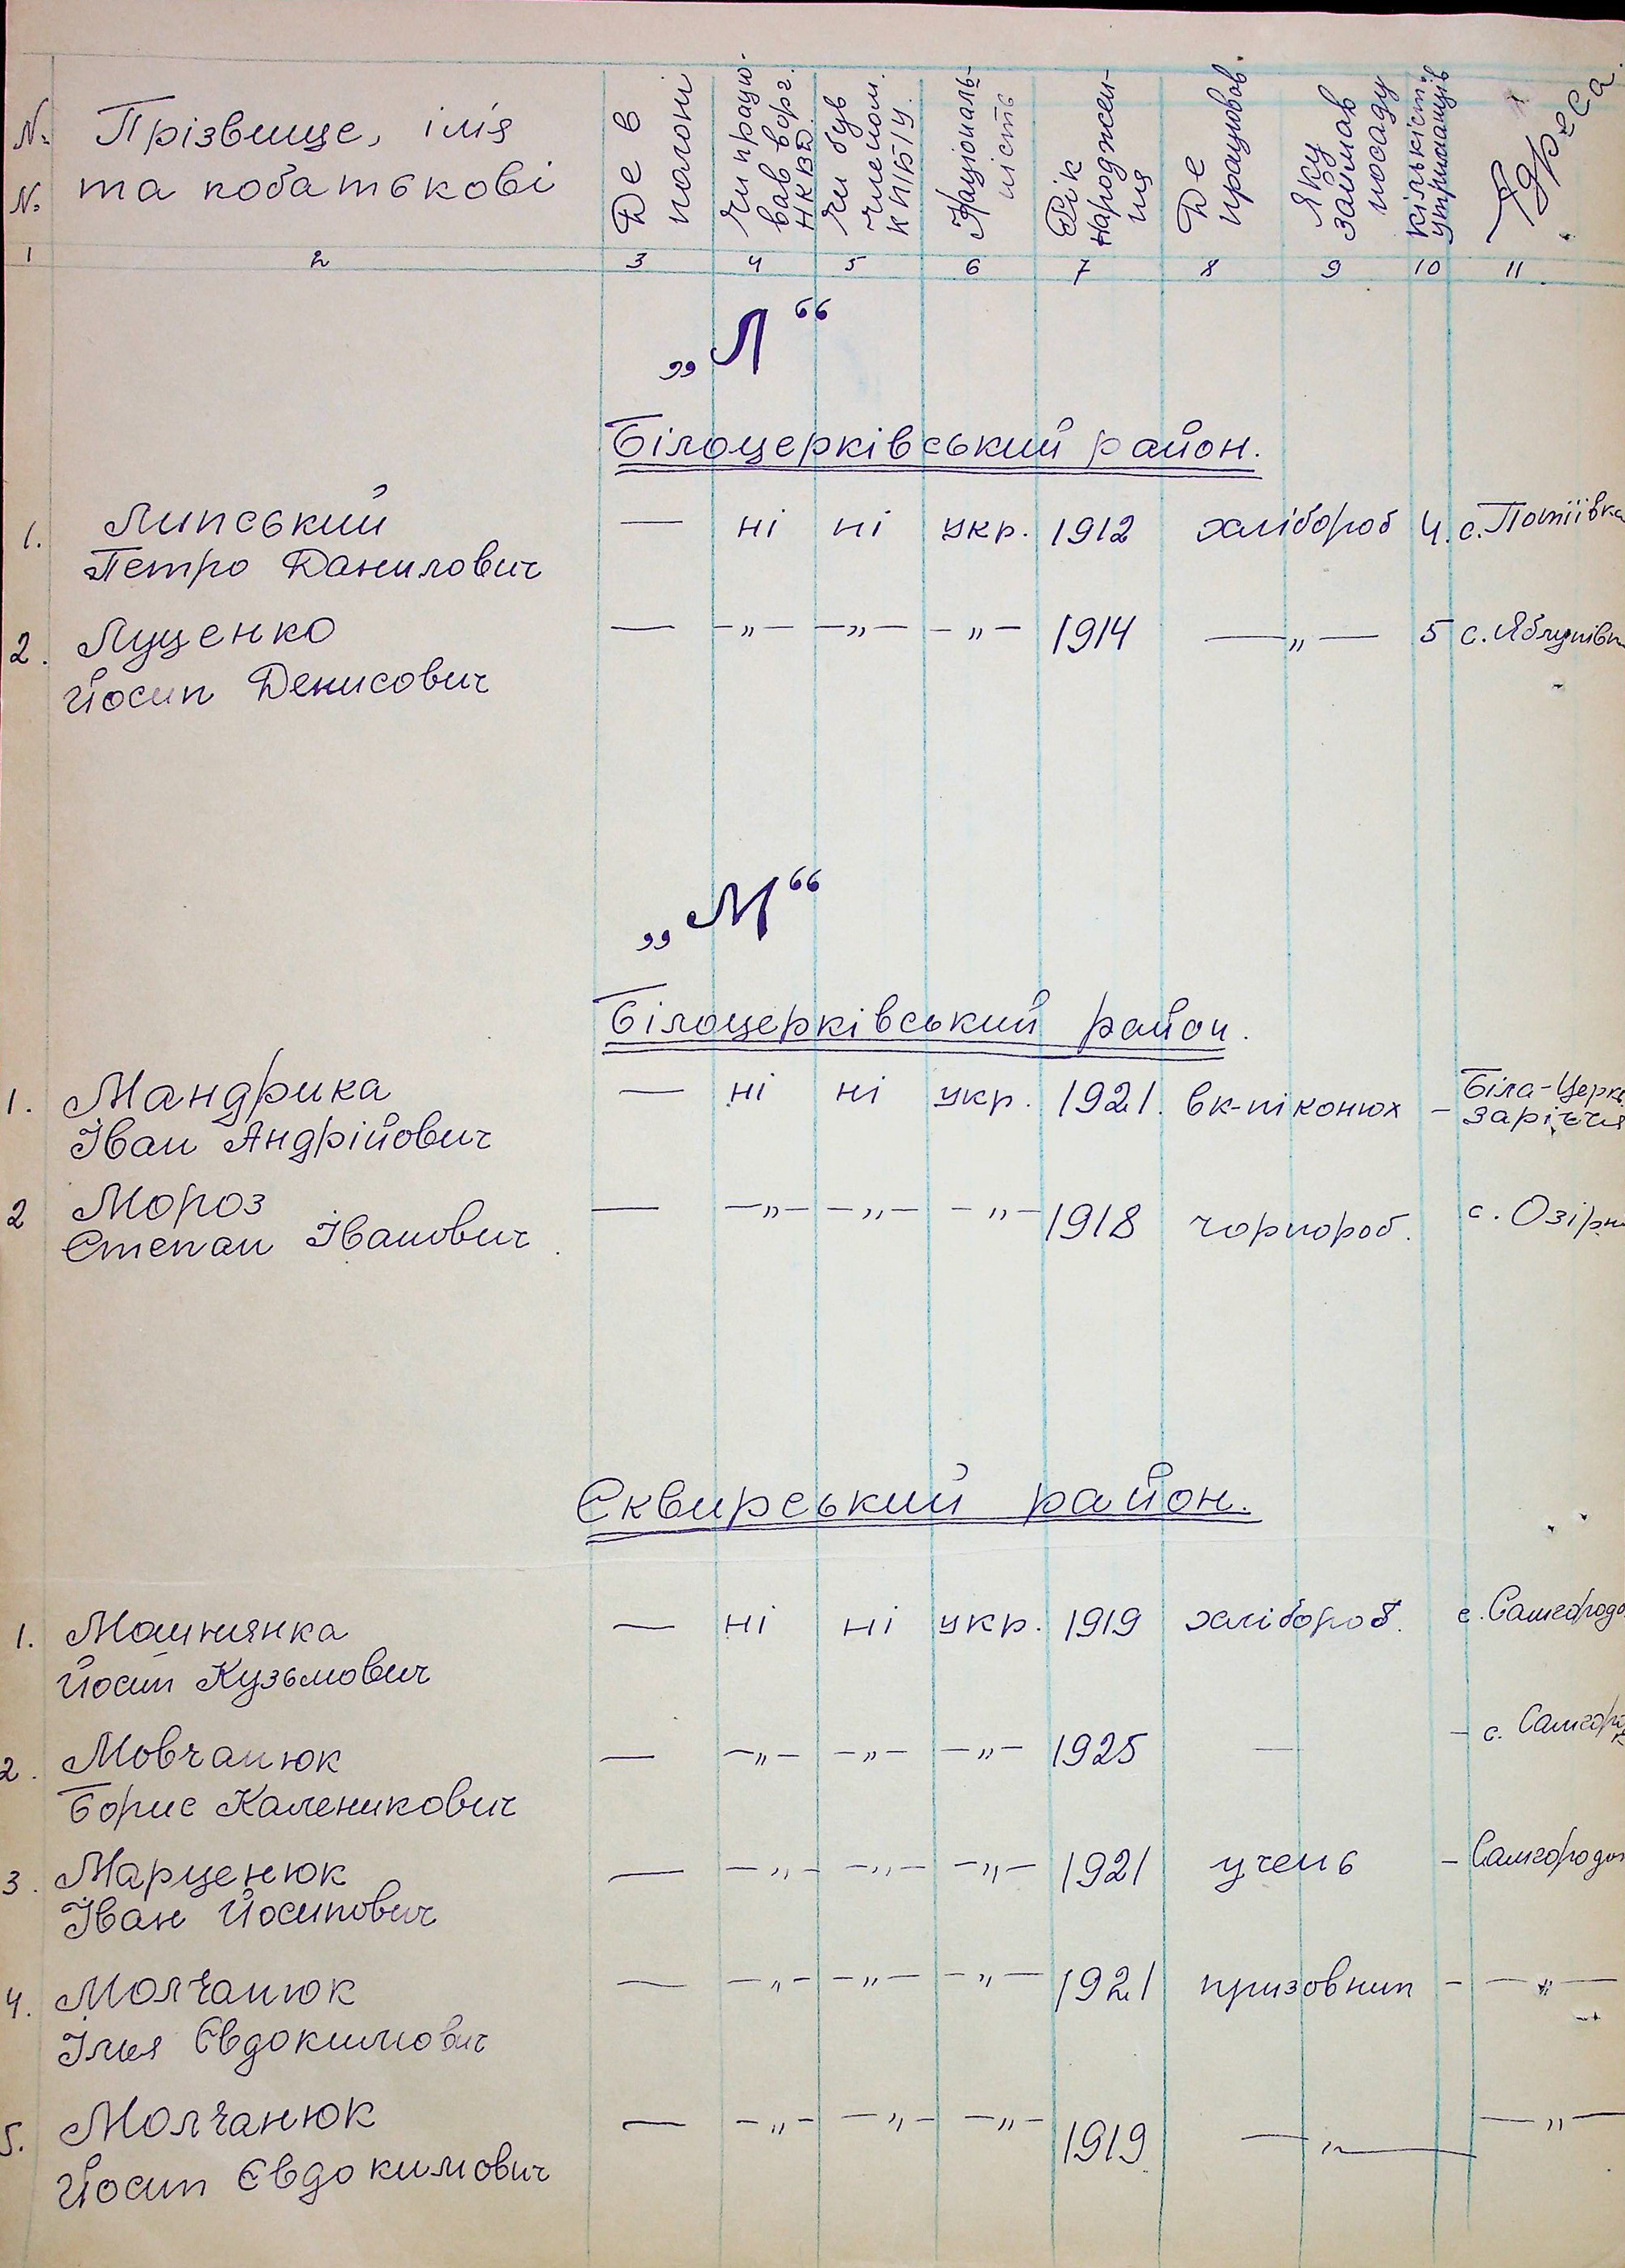 № № Прізвище, імя та побатькові Де в полоні Чи працював в орг. НКВД. Чи був членом КП/б/У. Національність Рік народження Де працював. Яку займав посаду Кількість утриманців Адреса.
1 2 3 4 5 6 7 8 9 10 11
„Л“
Білоцерківський район.
1. Липський — ні ні укр. 1912 хлібороб 4. с. Потіївка
Петро Данилович
2. Луценко — -„- -„- -„- 1914 —„— 5 с. Яблунівк
Йосип Денисович
„М“
Білоцерківський район.
1. Мандрика — ні ні укр. 1921. вк-ні конюх – Біла-Церк
Іван Андрійович Заріччя
2 Мороз — -„- -„- -„- 1918 чорнороб. с. Озірн
Степан Іванович.
Сквирський район.
1. Машнянка — ні ні укр. 1919 хлібороб. с. Самгородо
Йосип Кузьмович
2. Мовчанюк — -„- -„- -„- 1925 — – с. Самгор
Борис Каленикович
3. Марценюк — -„- -„- -„- 1921 учень – Самгородо
Іван Йосипович
4. Молчанюк — -„- -„- -„- 1921 призовник – —„—
Ілья Євдокимович
5. Молчанюк — -„- -„- -„- 1919 —„— —„—
Йосип Євдокимович